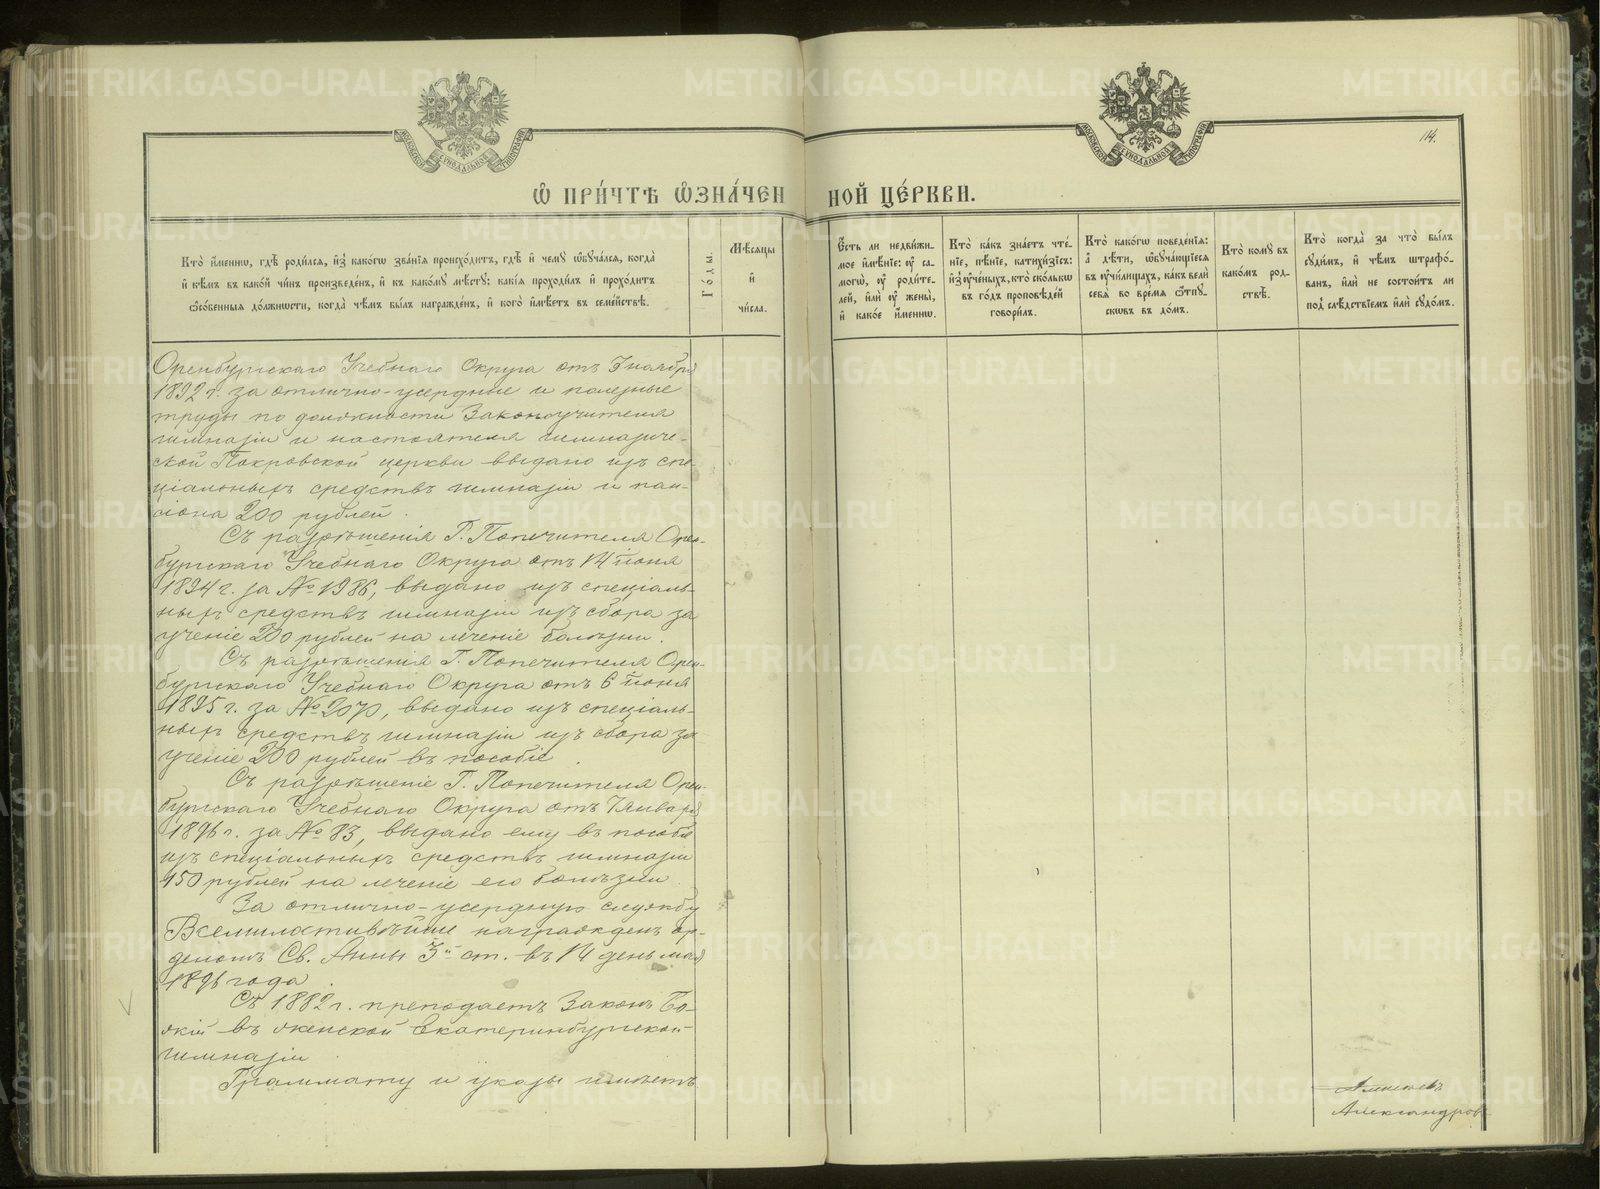 114.
Ѡ ПРИ́ЧТѢ Ѡ҆ЗНА́ЧЕН НОЙ ЦЕ́РКВИ.
Кто̀ и҆́меннѡ, гдѣ̀ роди́лсѧ, и҆з̾ како́гѡ зва́нїѧ происхо́дитъ, гдѣ̀ и҆ чемꙋ̀ ѡ҆бꙋча́лсѧ, когда̀
и҆ кѣ́мъ въ како́й чи́нъ произведе́нъ, и҆ къ како́мꙋ мѣ́стꙋ: какі̑ѧ проходи́лъ и҆ прохо́дитъ
ѻ҆со́бенныѧ до́лжности, когда̀ чѣ́мъ бы́лъ награжде́нъ, и҆ кого̀ и҆мѣ́етъ въ семе́йствѣ.
Го́ды.
Мѣ́сѧцы
и҆
чи́сла.
Е҆́сть ли недви́жи-
мое и҆мѣ́нїе: ᲂу҆ са-
могѡ̀, ᲂу҆ роди́те-
лей, и҆лѝ ᲂу҆ жены̀,
и҆ како́е и҆́меннѡ.
Кто̀ ка́къ зна́етъ чте́-
нїе, пѣ́нїе, катихи́зисъ:
и҆з̾ ᲂу҆че́ныхъ, кто̀ ско́лькѡ
въ го́дъ проповѣ́дей
говори́лъ.
Кто̀ како́гѡ поведе́нїѧ:
а҆ дѣ́ти, ѡ҆бꙋча́ющїесѧ
въ ᲂу҆чи́лищахъ, ка́къ велѝ
себѧ̀ во вре́мѧ ѿпꙋ-
скѡвъ въ до́мъ.
Кто̀ комꙋ̀ въ
како́мъ род-
ствѣ̀.
Кто̀ когда̀ за что̀ бы́лъ
сꙋди́мъ, и҆ чѣ́мъ штрафо́-
ванъ, и҆лѝ не состои́тъ ли
под̾ слѣ́дствїемъ и҆лѝ сꙋдо́мъ.
Оренбургскаго Учебнаго Округа отъ 7 ноября
1892 г. за отлично-усердные и полезные
труды по должности Законоучителя
гимназіи и настоятеля гимназиче-
ской Покровской церкви выдано изъ спе-
ціальныхъ средствъ гимназіи и пан-
сіона 200 рублей.
Съ разрѣшенія Г. Попечителя Орен-
бургскаго Учебнаго Округа отъ 14 іюня
1894 г. за № 1986, выдано изъ спеціаль-
ныхъ средствъ гимназіи изъ сбора за
ученіе 200 рублей на леченіе болѣзни.
Съ разрѣшенія Г. Попечителя Орен-
бургскаго Учебнаго Округа отъ 6 іюня
1895 г. за № 2070, выдано изъ спеціаль-
ныхъ средствъ гимназіи изъ сбора за
ученіе 200 рублей въ пособіе.
Съ разрѣшеніе Г. Попечителя Орен-
бургскаго Учебнаго Округа отъ 7 января
1896 г. за № 83, выдано ему въ пособіе
изъ спеціальныхъ средствъ гимназіи
150 рублей на леченіе его болѣзни
За отлично-усердную службу
Всемилостивѣйше награжденъ ор-
деномъ Св. Анны 3й ст. въ 14 день мая
1896 года.
Съ 1882 г. преподаетъ Законъ Бо-
жій въ женской Екатеринбургской
гимназіи.
Граммату и указы имѣетъ
Александров